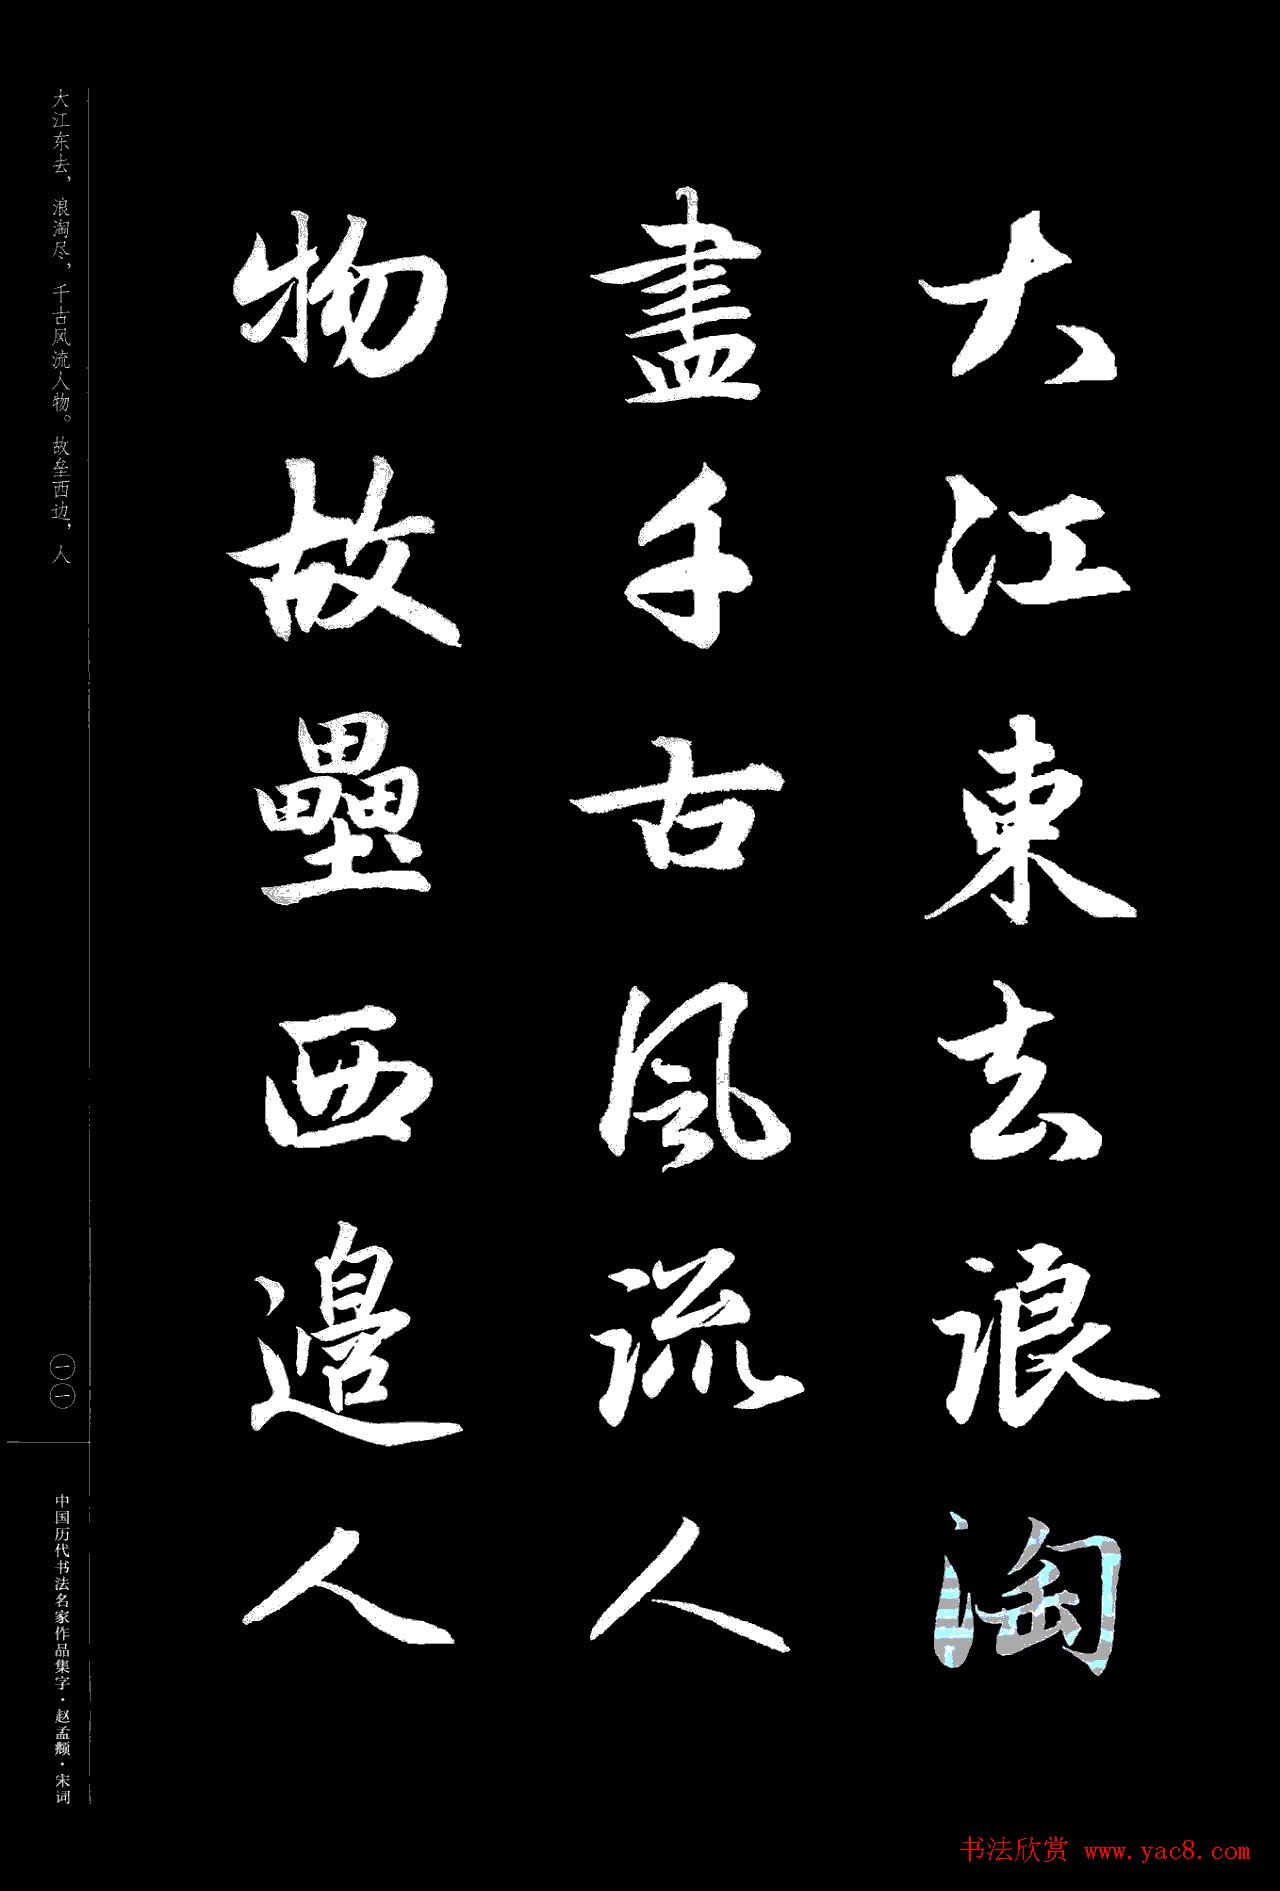 大江東去浪淘
盡千古風流人
物故壘西邊人
大江东去，浪淘尽，千古风流人物。故垒西边，人
一一
中国历代书法名家作品集字·赵孟頫·宋词
书法欣赏 www.yac8.com